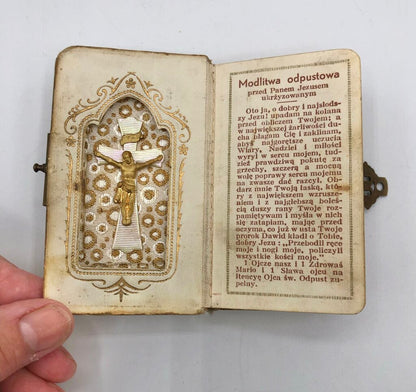 Modlitwa odpustowa
przed Panem Jezusem
ukrzyżowanym
Oto ja, o dobry i najsłod-
szy Jezu! upadam na kolana
przed obliczem Twojem; a
w największej żarliwości du-
cha błagam Cię i zaklinam,
abyś najgorętsze uczucia
Wiary, Nadziei i miłości
wyrył w sercu mojem, tudzież
prawdziwą pokutę za
grzechy, szczerą a mocną
wolę poprawy sercu mojemu
na zwasze dać raczył. Ob-
darz mnie Twoją łaską, któ-
ry z największem wzrusze-
niem i z najgłębszą boleś-
cią duszy rany Twoje roz-
pamiętywam i myślą w nich
się zatapiam, mając przed
oczyma, co już w usta Twoje
prorok Dawid kładł o Tobie,
dobry Jezu: „Przebodli ręce
moje i nogi moje, policzyli
wszystkie kości moje."
1 Ojcze nasz i 1 Zdrowaś
Mario i 1 Sława ojcu na
itencyę Ojca św. Odpust zu-
pełny.